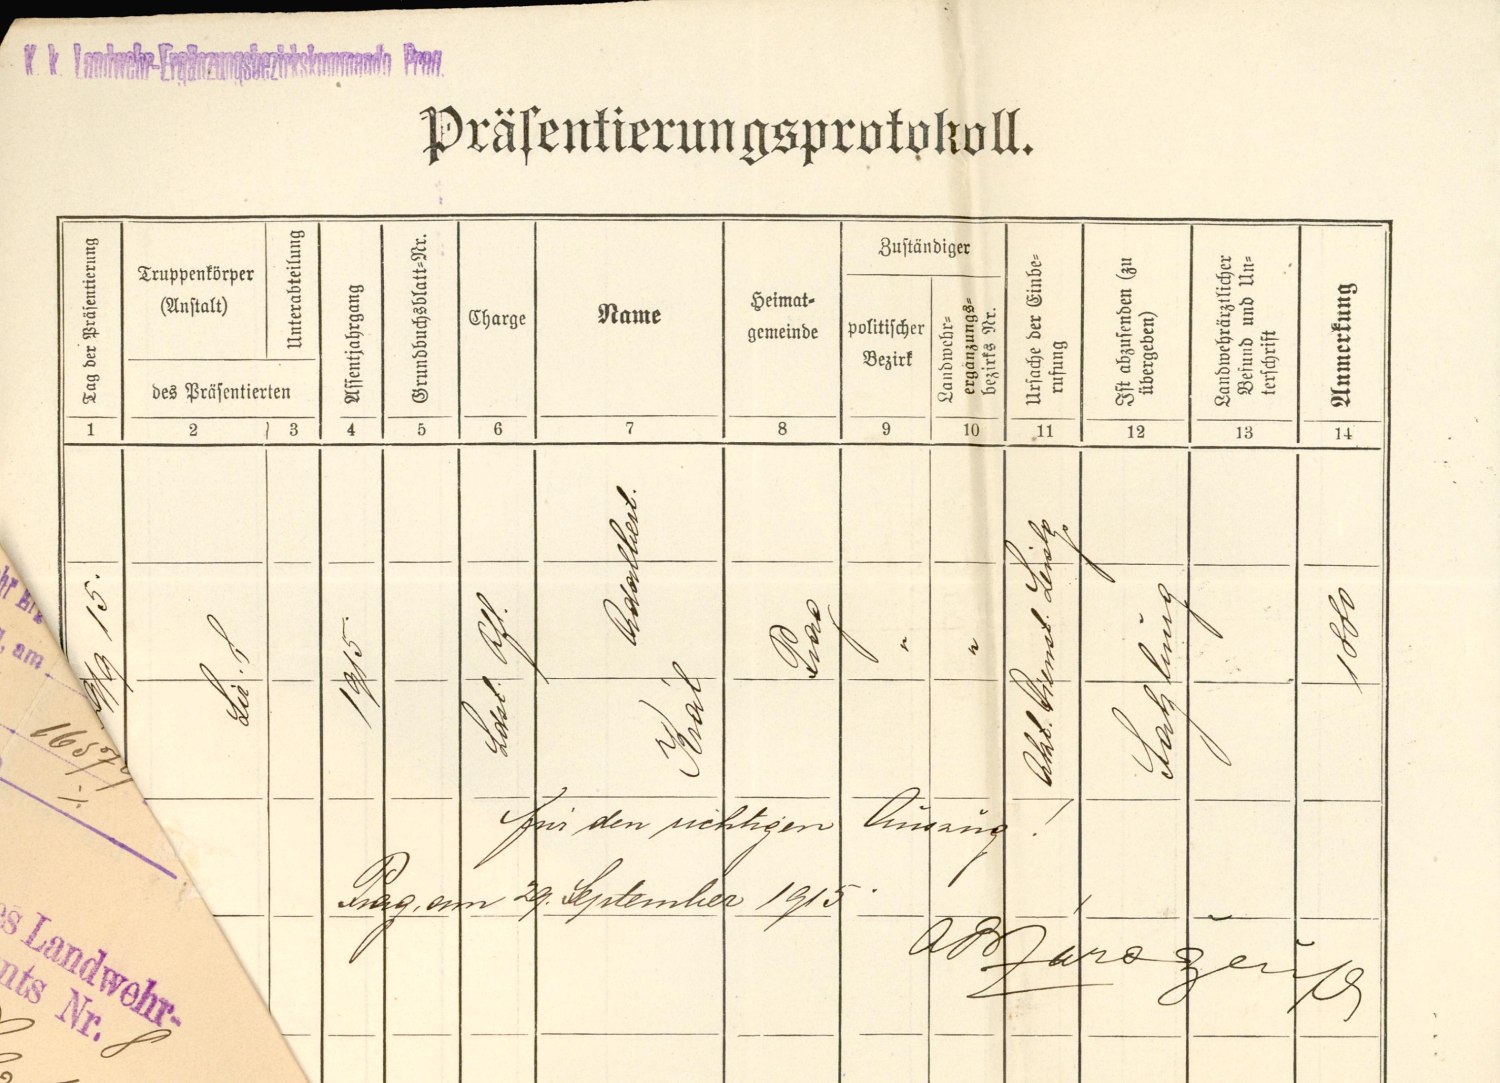 K. k. Landwehr-Ergänzungsbezirkskommando Prag.
Präsentierungsprotokoll.
Tag der Präsentierung
Truppenkörper
(Anstalt)
Unterabteilung
des Präsentierten
Assentjahrgang
Grundbuchsblatt-Nr.
Charge
Name
Heimat-
gemeinde
Zuständiger
politischer
Bezirk
Landwehr-
ergänzungs-
bezirks Nr.
Ursache der Einbe-
rufung
Ist abzusenden (zu
übergeben)
Landwehrärztlicher
Befund und Un-
terschrift
Anmerkung
1 2 3 4 5 6 7 8 9 10 11 12 13 14
/9 15.
1915
Král
Adalbert.
Prag
"
"
für den richtigen Auszug!
Prag, am 29. September 1915.
am
es Landwehr-
nts Nr. 8